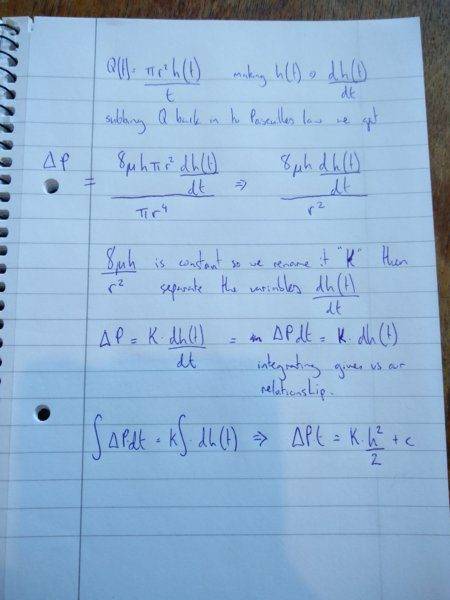 Q(t) = πr²h(t)/t making h(t) ⇒ dh(t)/dt
subbing Q back in to Poiseuilles law we get
ΔP = 8μhπr² dh(t)/dt / πr⁴ ⇒ 8μh dh(t)/dt / r²
8μh/r² is constant so we rename it "K" then
separate the variables dh(t)/dt
ΔP = K · dh(t)/dt = ΔPdt = K · dh(t)
integrating gives us our
relationship.
∫ΔPdt = K∫· dh(t) ⇒ ΔPt = K · h²/2 + c